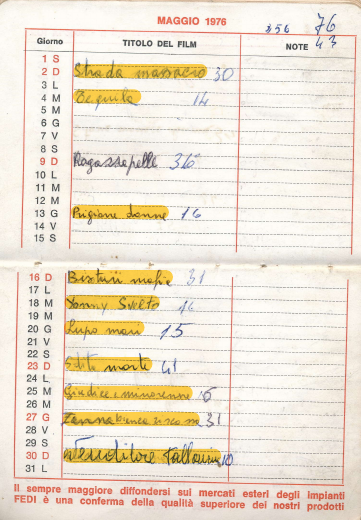 MAGGIO 1976
76
356
43
Giorno TITOLO DEL FILM NOTE
1 S
2 D Strada massacro 30
3 L
4 M Tequila 14
5 M
6 G
7 V
8 S
9 D Ragassa pelle 36
10 L
11 M
12 M
13 G Prigione donne 16
14 V
15 S
16 D Bisturi mafia 31
17 L
18 M Jonny Svelto 16
19 M
20 G Lupo mari 15
21 V
22 S
23 D morte 41
24 L
25 M Giudice e minorenne
26 M
27 G Zanna bianca 31
28 V
29 S
30 D Venditore Palloncini 10
31 L
Il sempre maggiore diffondersi sui mercati esteri degli impianti
FEDI è una conferma della qualità superiore dei nostri prodotti